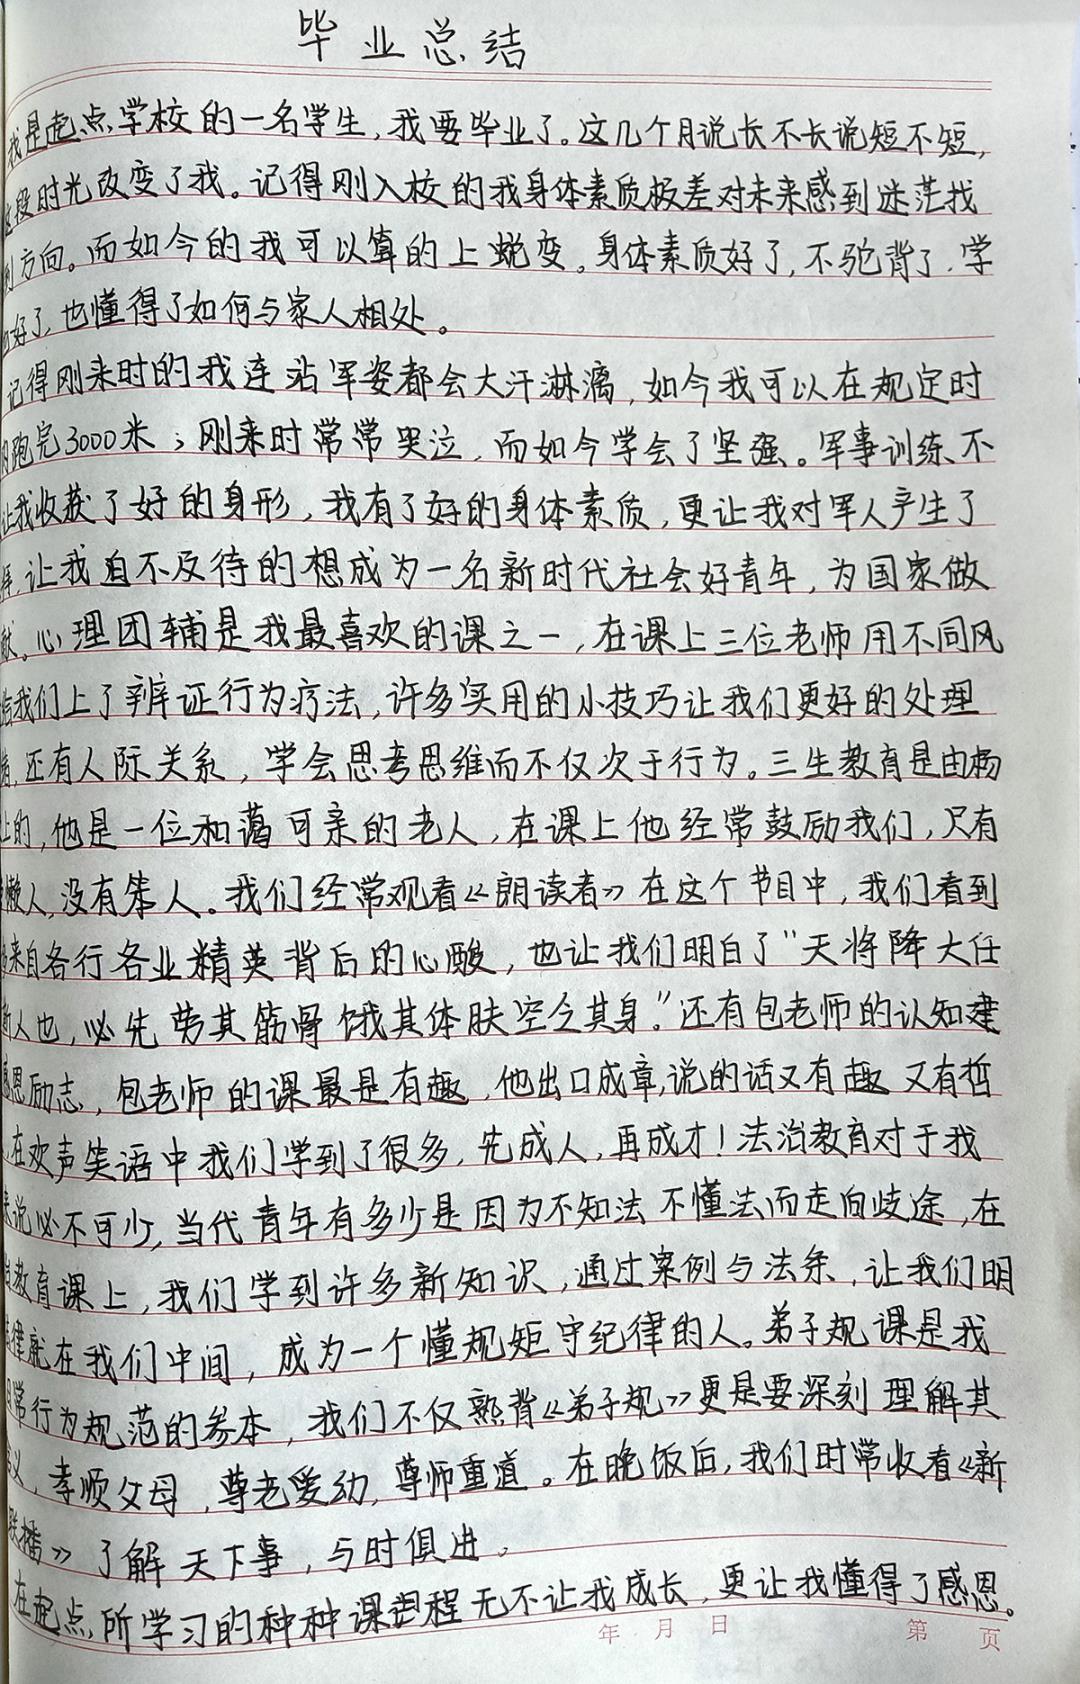 毕业总结
我是起点学校的一名学生，我要毕业了。这几个月说长不长说短不短，
这段时光改变了我。记得刚入校的我身体素质极差对未来感到迷茫找
到方向。而如今的我可以算的上蜕变。身体素质好了，不驼背了，学
好了，也懂得了如何与家人相处。
记得刚来时的我连站军姿都会大汗淋漓，如今我可以在规定时
内跑完3000米；刚来时常常哭泣，而如今学会了坚强。军事训练不
让我收获了好的身形，我有了好的身体素质，更让我对军人产生了
，让我迫不及待的想成为一名新时代社会好青年，为国家做
献。心理团辅是我最喜欢的课之一，在课上三位老师用不同风
给我们上了辨证行为疗法，许多实用的小技巧让我们更好的处理
，还有人际关系，学会思考思维而不仅次于行为。三生教育是由杨
上的，他是一位和蔼可亲的老人，在课上他经常鼓励我们，只有
懒人，没有笨人。我们经常观看《朗读者》在这个节目中，我们看到
来自各行各业精英背后的心酸，也让我们明白了“天将降大任
斯人也，必先劳其筋骨饿其体肤空乏其身”还有包老师的认知建
感恩励志，包老师的课最是有趣，他出口成章，说的话又有趣又有哲
，在欢声笑语中我们学到了很多，先成人，再成才！法治教育对于我
来说必不可少，当代青年有多少是因为不知法不懂法而走向歧途，在
教育课上，我们学到许多新知识，通过案例与法条，让我们明
律就在我们中间，成为一个懂规矩守纪律的人。弟子规课是我
日常行为规范的参本，我们不仅熟背《弟子规》更是要深刻理解其
含义，孝顺父母，尊老爱幼，尊师重道。在晚饭后，我们时常收看《新
联播》了解天下事，与时俱进。
在起点所学习的种种课程无不让我成长，更让我懂得了感恩。
年 月 日 第 页